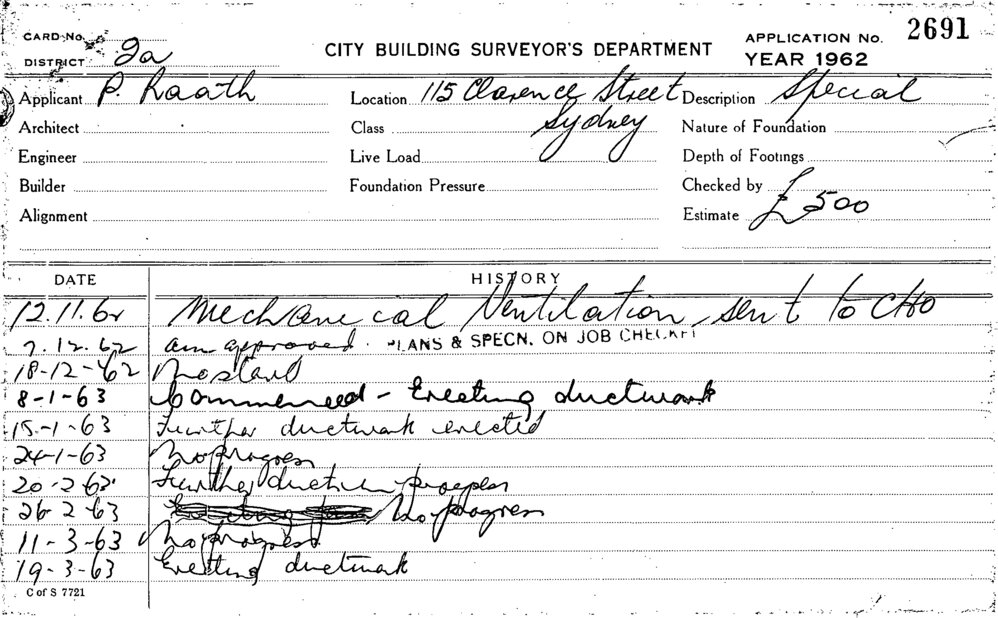 CARD No.
CITY BUILDING SURVEYOR'S DEPARTMENT
APPLICATION No. 2691
YEAR 1962
DISTRICT 9a
Applicant P. Raath Location 115 Clarence Street Description Special
Architect Class Sydney Nature of Foundation
Engineer Live Load Depth of Footings
Builder Foundation Pressure Checked by
Alignment Estimate £500
DATE HISTORY
12.11.62 Mechanical Ventilation sent to CHO
7.12.62 approved. PLANS & SPECN. ON JOB CHECKED
18-12-62 No start
8-1-63 Commenced - Erecting ductwork
15-1-63 Further ductwork erected
24-1-63 No progress
20-2-63 Further duct in progress
26-2-63 No progress
11-3-63 No progress
19-3-63 Erecting ductwork
C of S 7721